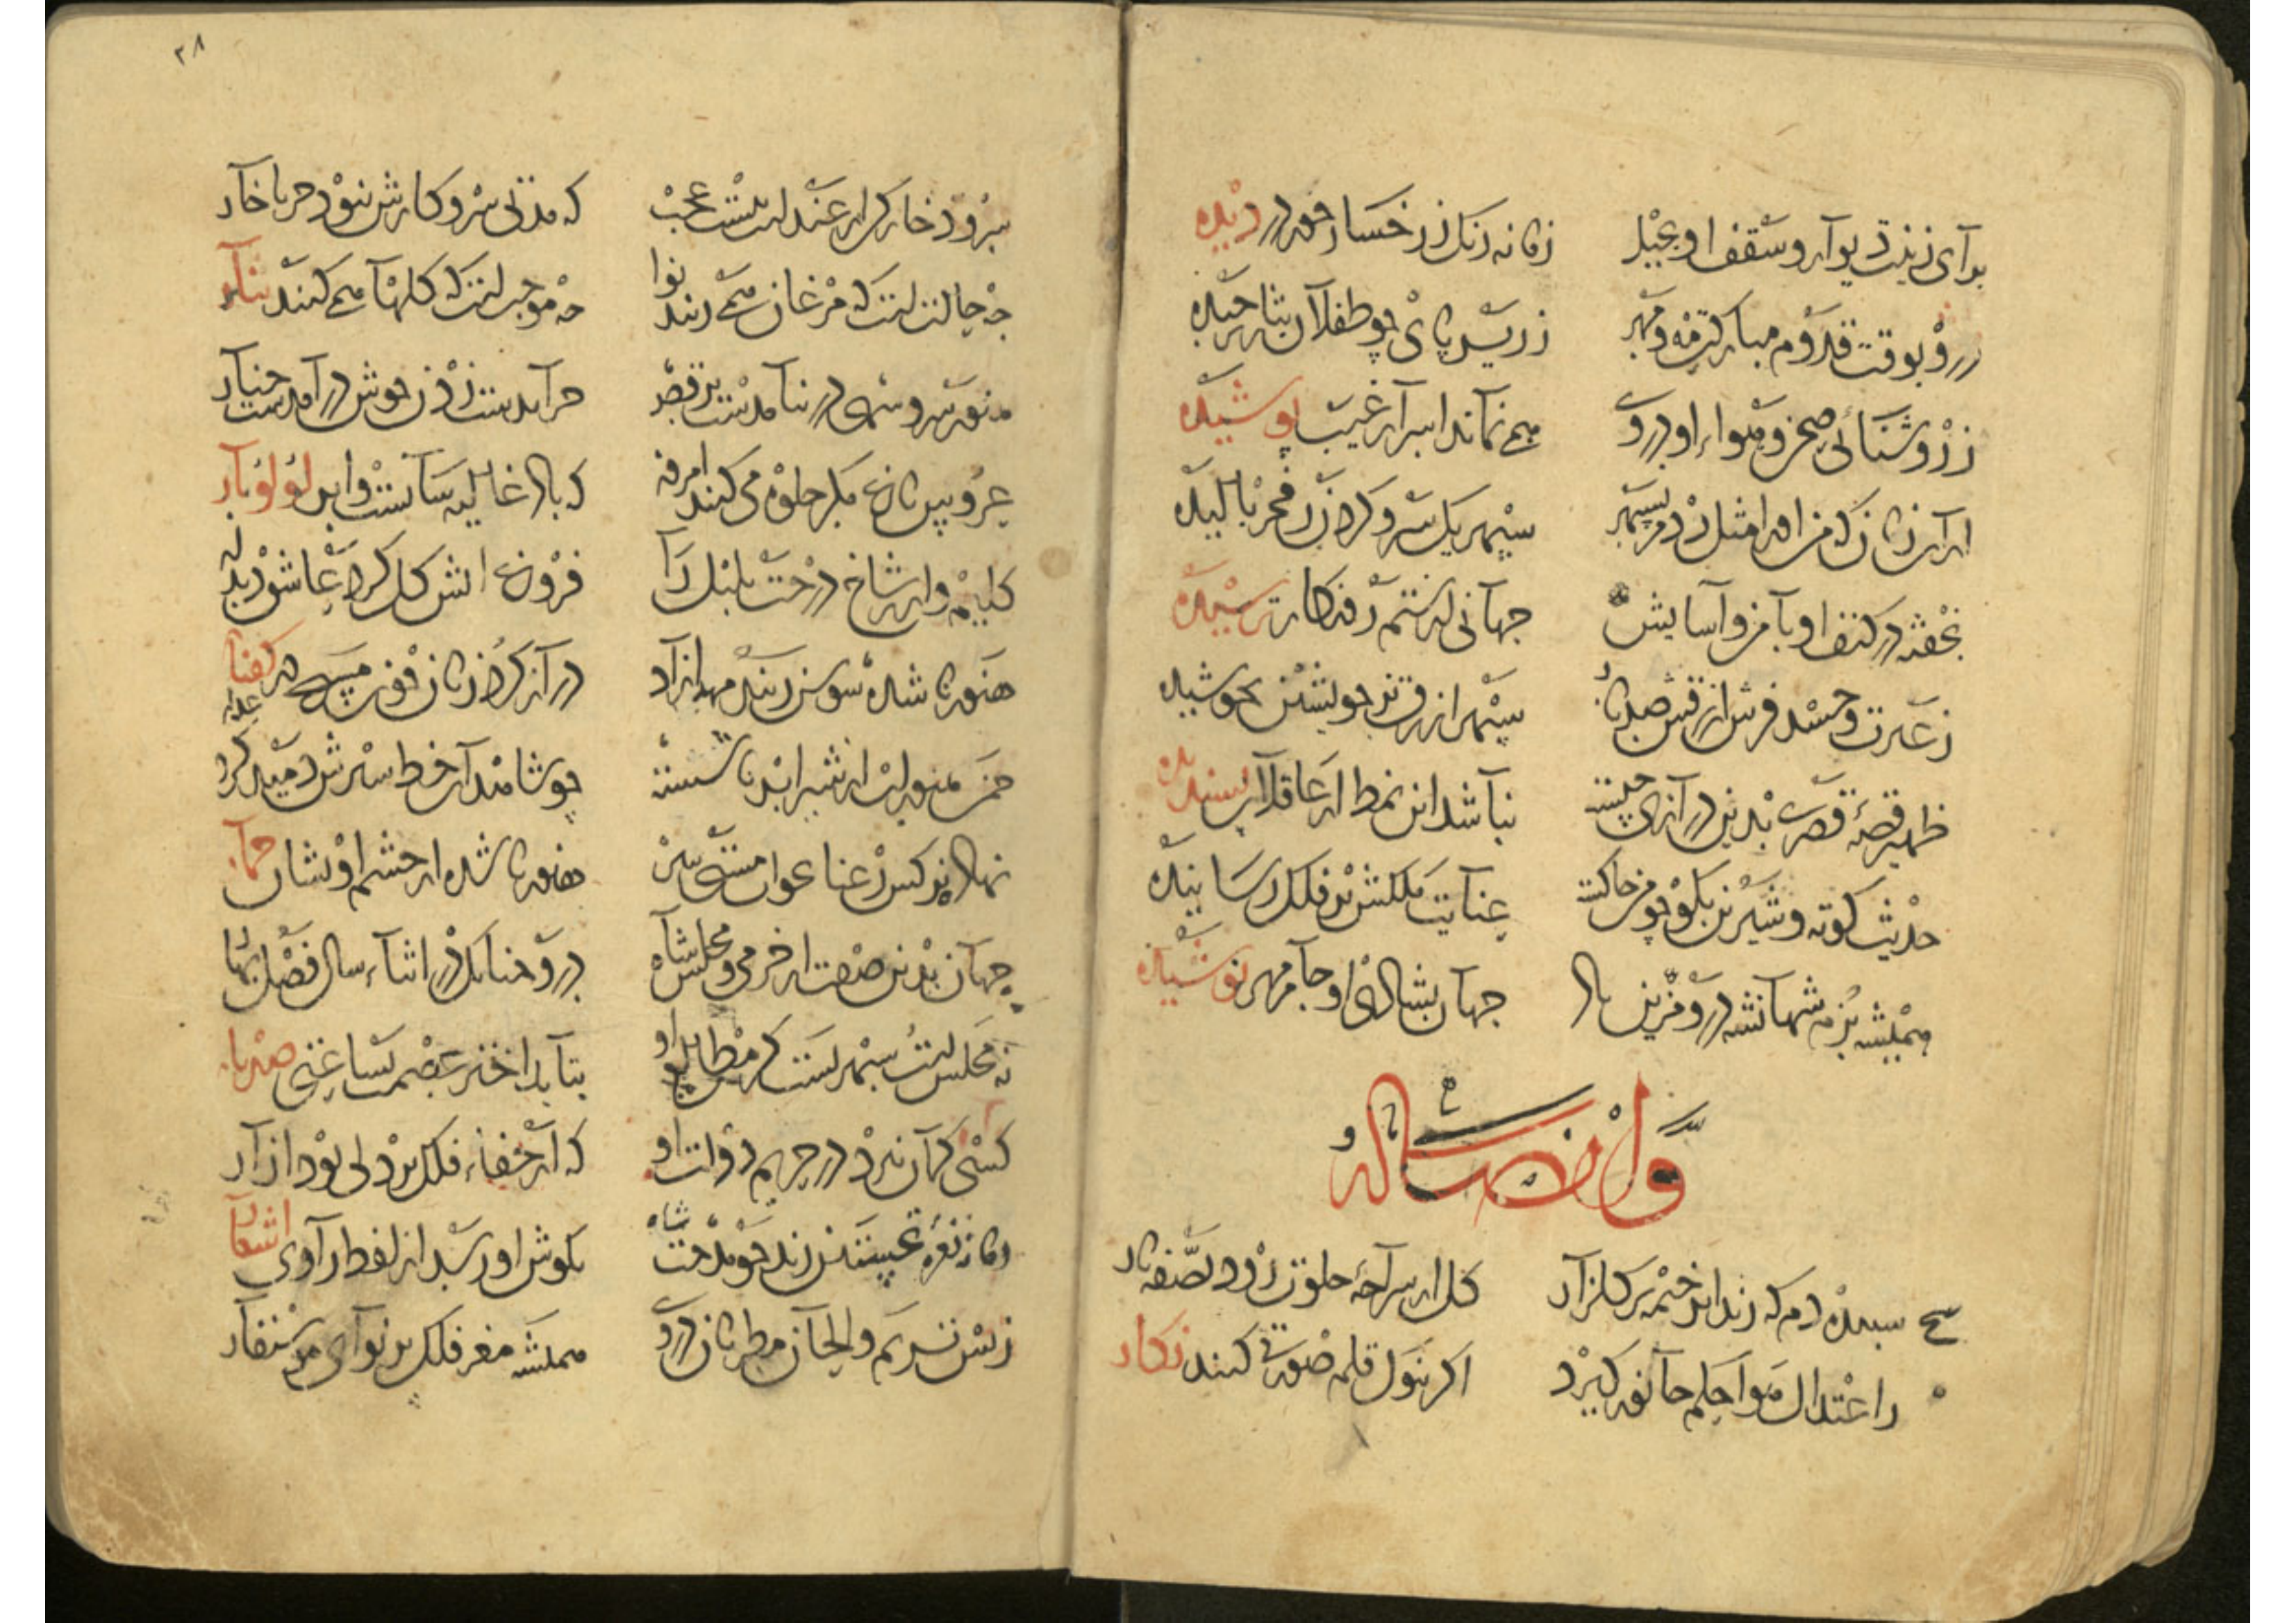 برای زینت دیوار و سقف او بخیل زمانه رنگ ز رخسار حور در دیده
درو بوقت قدوم مبارکت مه و مهر زر سپید چو طفلان نثار چیده
ز روشنائی صحن و هواء او در وی همی نماند اسرار غیب پوشیده
سپهر یک سر و کردن ز فخر بالیده
بخفته در کنف او بامن و آسایش جهانی از ستم روزکار ترسیده
ز غیرت و حسد فرش ازرقش صد بار سپهر ازرق بر خویشتن بجوشیده
ظهیر قصه قصری بدین درازی چیست نباشد این نمط از عاقلان پسندیده
حدیث کوته و شیرین بکو چو می‌دانی عنایت ملکش بر فلک رسانیده
همیشه بزم شهانشه درو مزین باد جهان بشادی او جام مهر نوشیده
وله ایضا
سپیده دم که زند ابر خیمه بر کلزار کل از سراچه خلوت رود بصفه بار
ز اعتدال هوا حکم جانور کیرد اکر بنوک قلم صورتی کنند نکار
۳۸
سرود خارکن از عندلیب نیست عجب که مدتی سر و کارش نبود جز با خار
چه حالتست که مرغان همی زنند نوا چه موجبست که کلها همی کنند نثار
هنوز سرو سهی در نیامدست برقص چرا بدست زدن خوش درآمدست چنار
عروس باغ مکر جلوه می کند امروز که باد غالیه سایست و ابر لؤلؤبار
کلیم وار بر شاخ درخت بلبل را فروغ آتش کل کرد عاشق دیدار
هنوز ناشده سوسن ز بند مهد آزاد دراز کرد زبان چون مسیح در کفتار
چمن هنوز لب از شیر ابر ناشسته چو شاهدان خط سبزش دمید کرد عذار
نهاد نرکس رعنا بخواب مستی سر هنوز ناشده از چشم او نشان خمار
جهان بدین صفت از خرمی و مجلس شاه درو چنانک در اثناء سال فصل بهار
نه مجلس است سپهرست کز مطالع او بتابد اختر عصمت بساعتی صد بار
کسی کمان نبرد در حریم دولت او که از جفاء فلک بر دلی بود آزار
زمانه نعره تحسین زند چو مدحت شاه بکوش او رسد از لفظ راوی اشعار
ز بس ترنم و الحان مطربان در وی همیشه مغز فلک پر نوای موسیقار